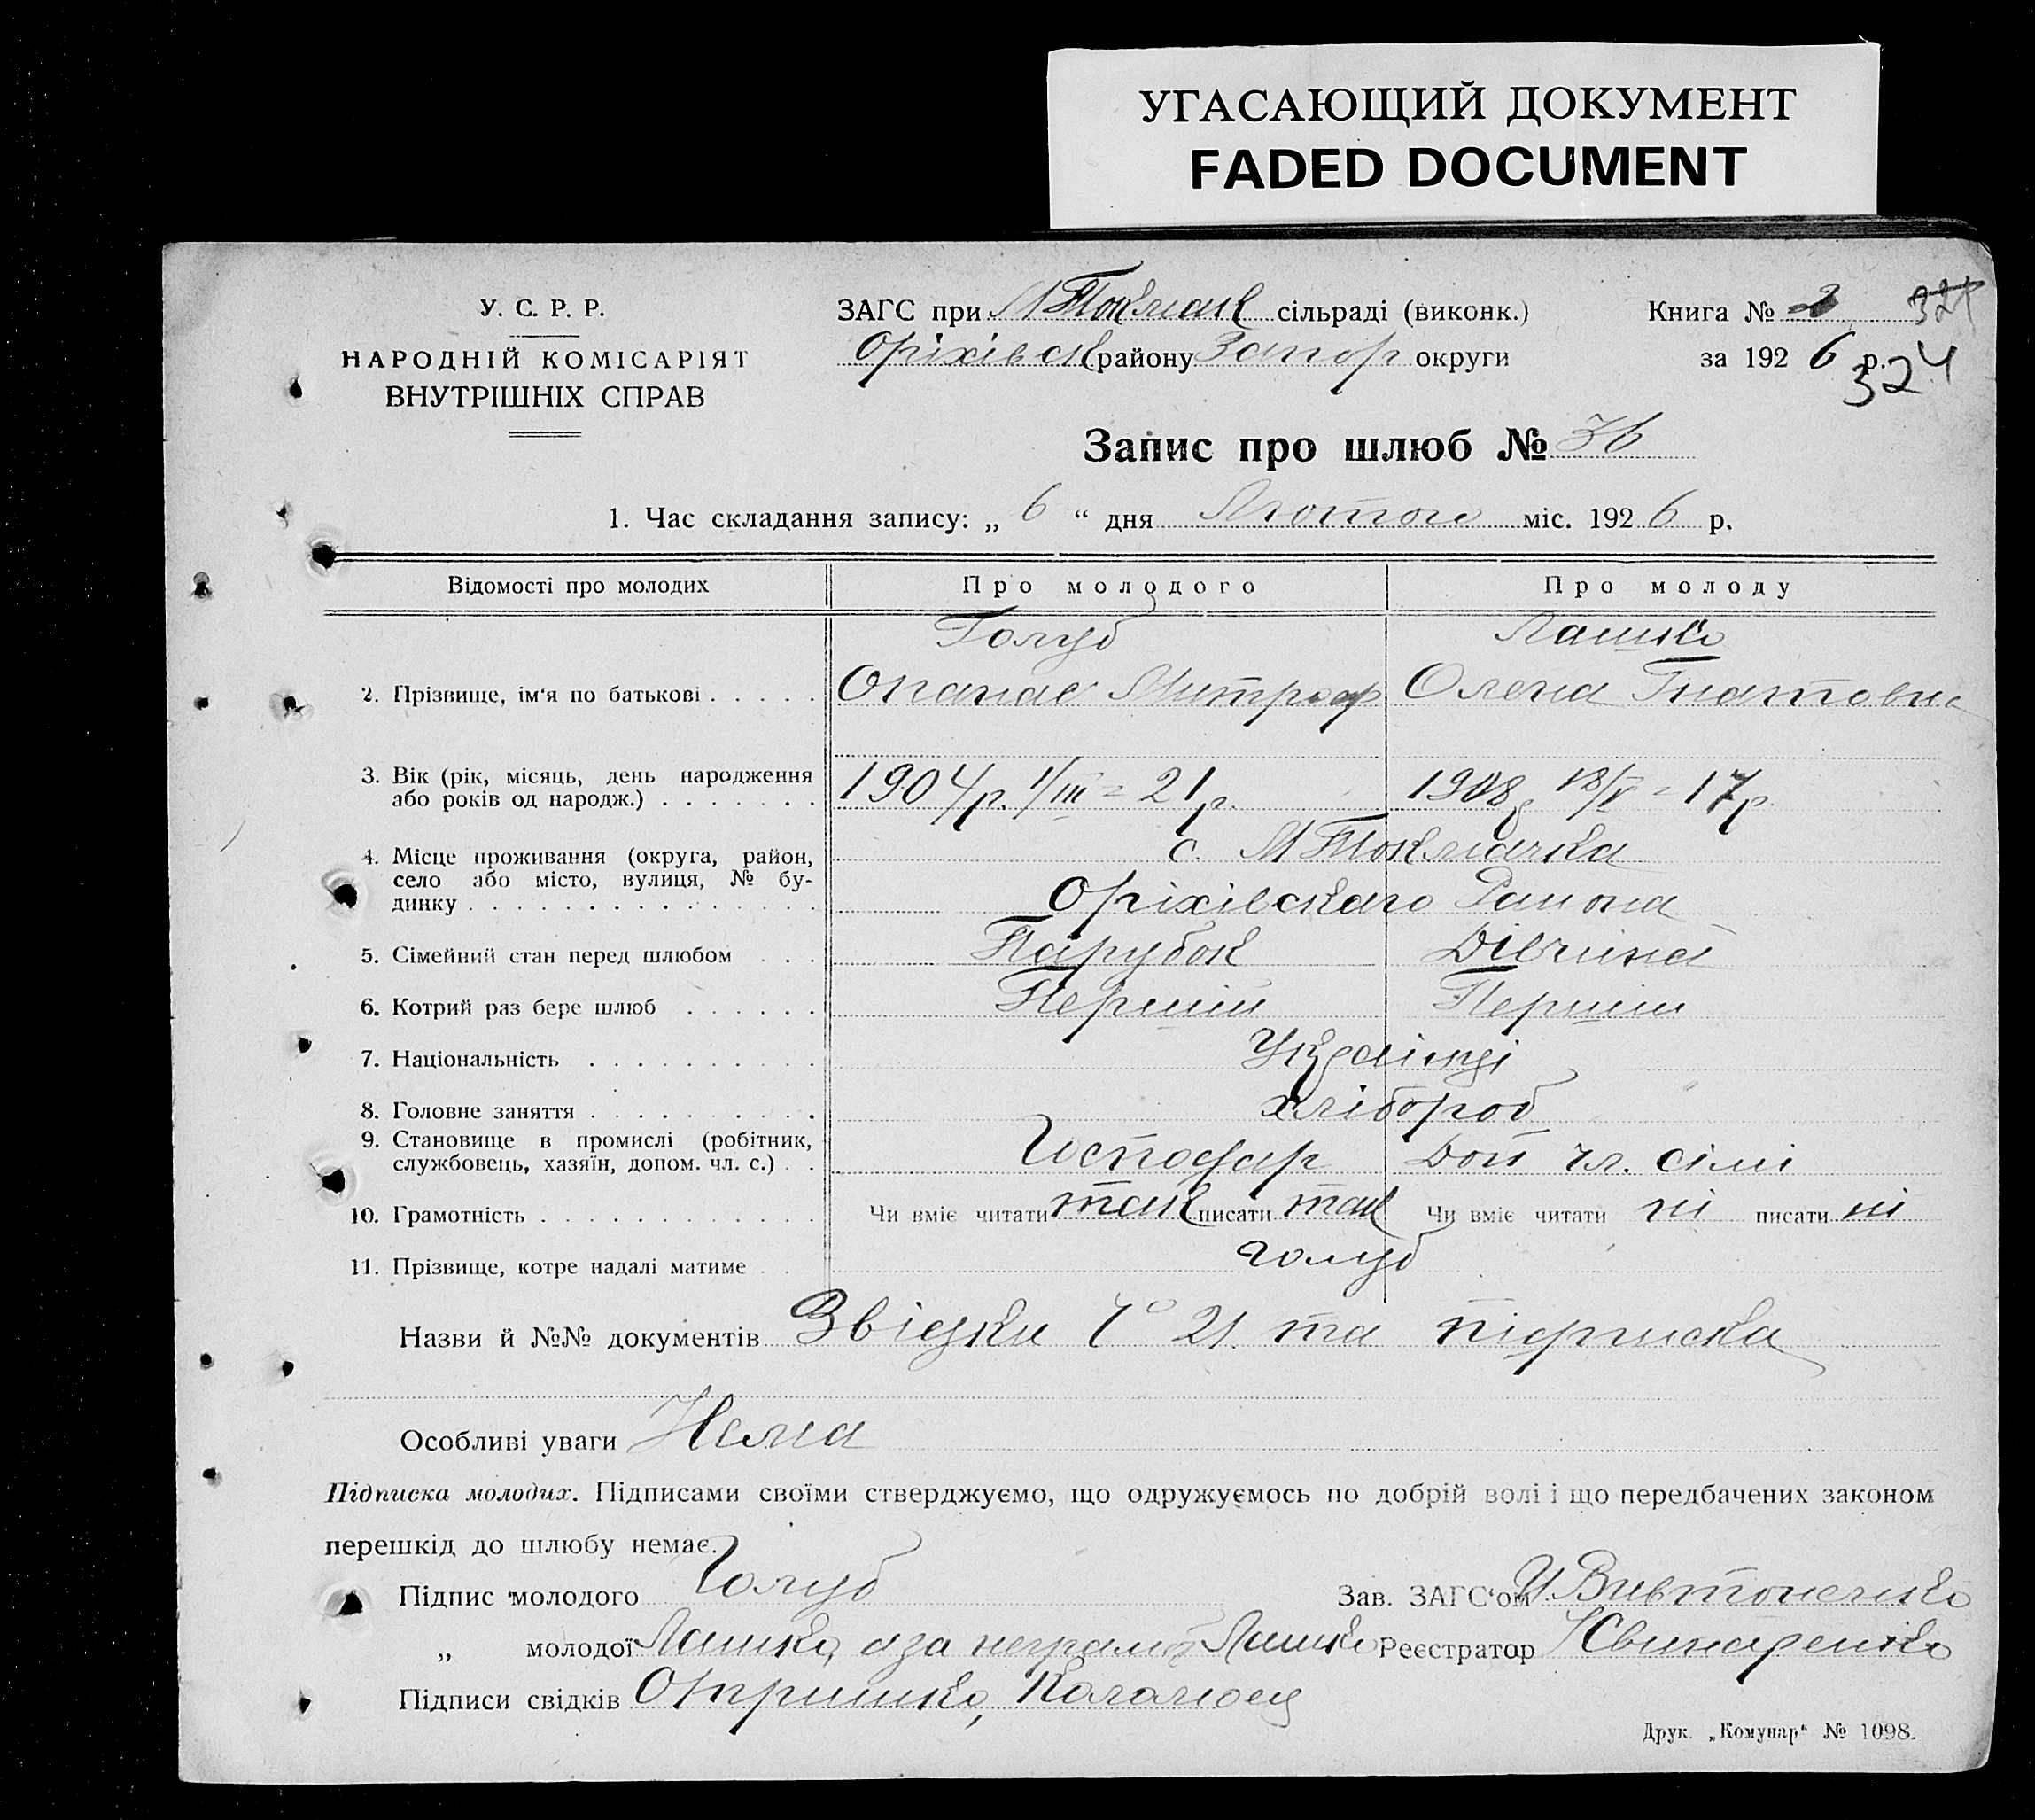 УГАСАЮЩИЙ ДОКУМЕНТ
FADED DOCUMENT
У. С. Р. Р.
НАРОДНІЙ КОМІСАРІЯТ
ВНУТРІШНІХ СПРАВ
ЗАГС при М Токмак сільраді (виконк.)
Оріхівськ району Запор округи
Книга № 2 324
за 1926 р. 324
Запис про шлюб № 36
1. Час складання запису: „ 6 “ дня Лютого міс. 1926 р.
Відомості про молодих Про молодого Про молоду
Голуб Лашко
2. Прізвище, ім‘я по батькові Опанас Митроф Олена Гнатовна
3. Вік (рік, місяць, день народження
або років од народж.) 1904 р. 1/III = 21 р. 1908 р 18/V = 17 р.
4. Місце проживання (округа, район, с. М Токмачка
село або місто, вулиця, № бу-
динку Оріхівского Раиона
5. Сімейний стан перед шлюбом Парубок Дівчина
6. Котрий раз бере шлюб Перший Перший
7. Національність Українці
8. Головне заняття хлібороб
9. Становище в промислі (робітник,
службовець, хазяїн, допом. чл. с.) Господар Доп чл. сімі
10. Грамотність Чи вміє читати так писати так Чи вміє читати ні писати ні
11. Прізвище, котре надалі матиме голуб
Назви й №№ документів Звідки 21 та підписка
Особливі уваги Нема
Підписка молодих. Підписами своїми стверджуємо, що одружуємось по добрій волі і що передбачених законом
перешкід до шлюбу немає.
Підпис молодого Голуб Зав. ЗАГС‘ом
„ молодої Лашко, а за неграмот Лашко Реєстратор Свинаренко
Підписи свідків
Друк. „Комунар“ № 1098.